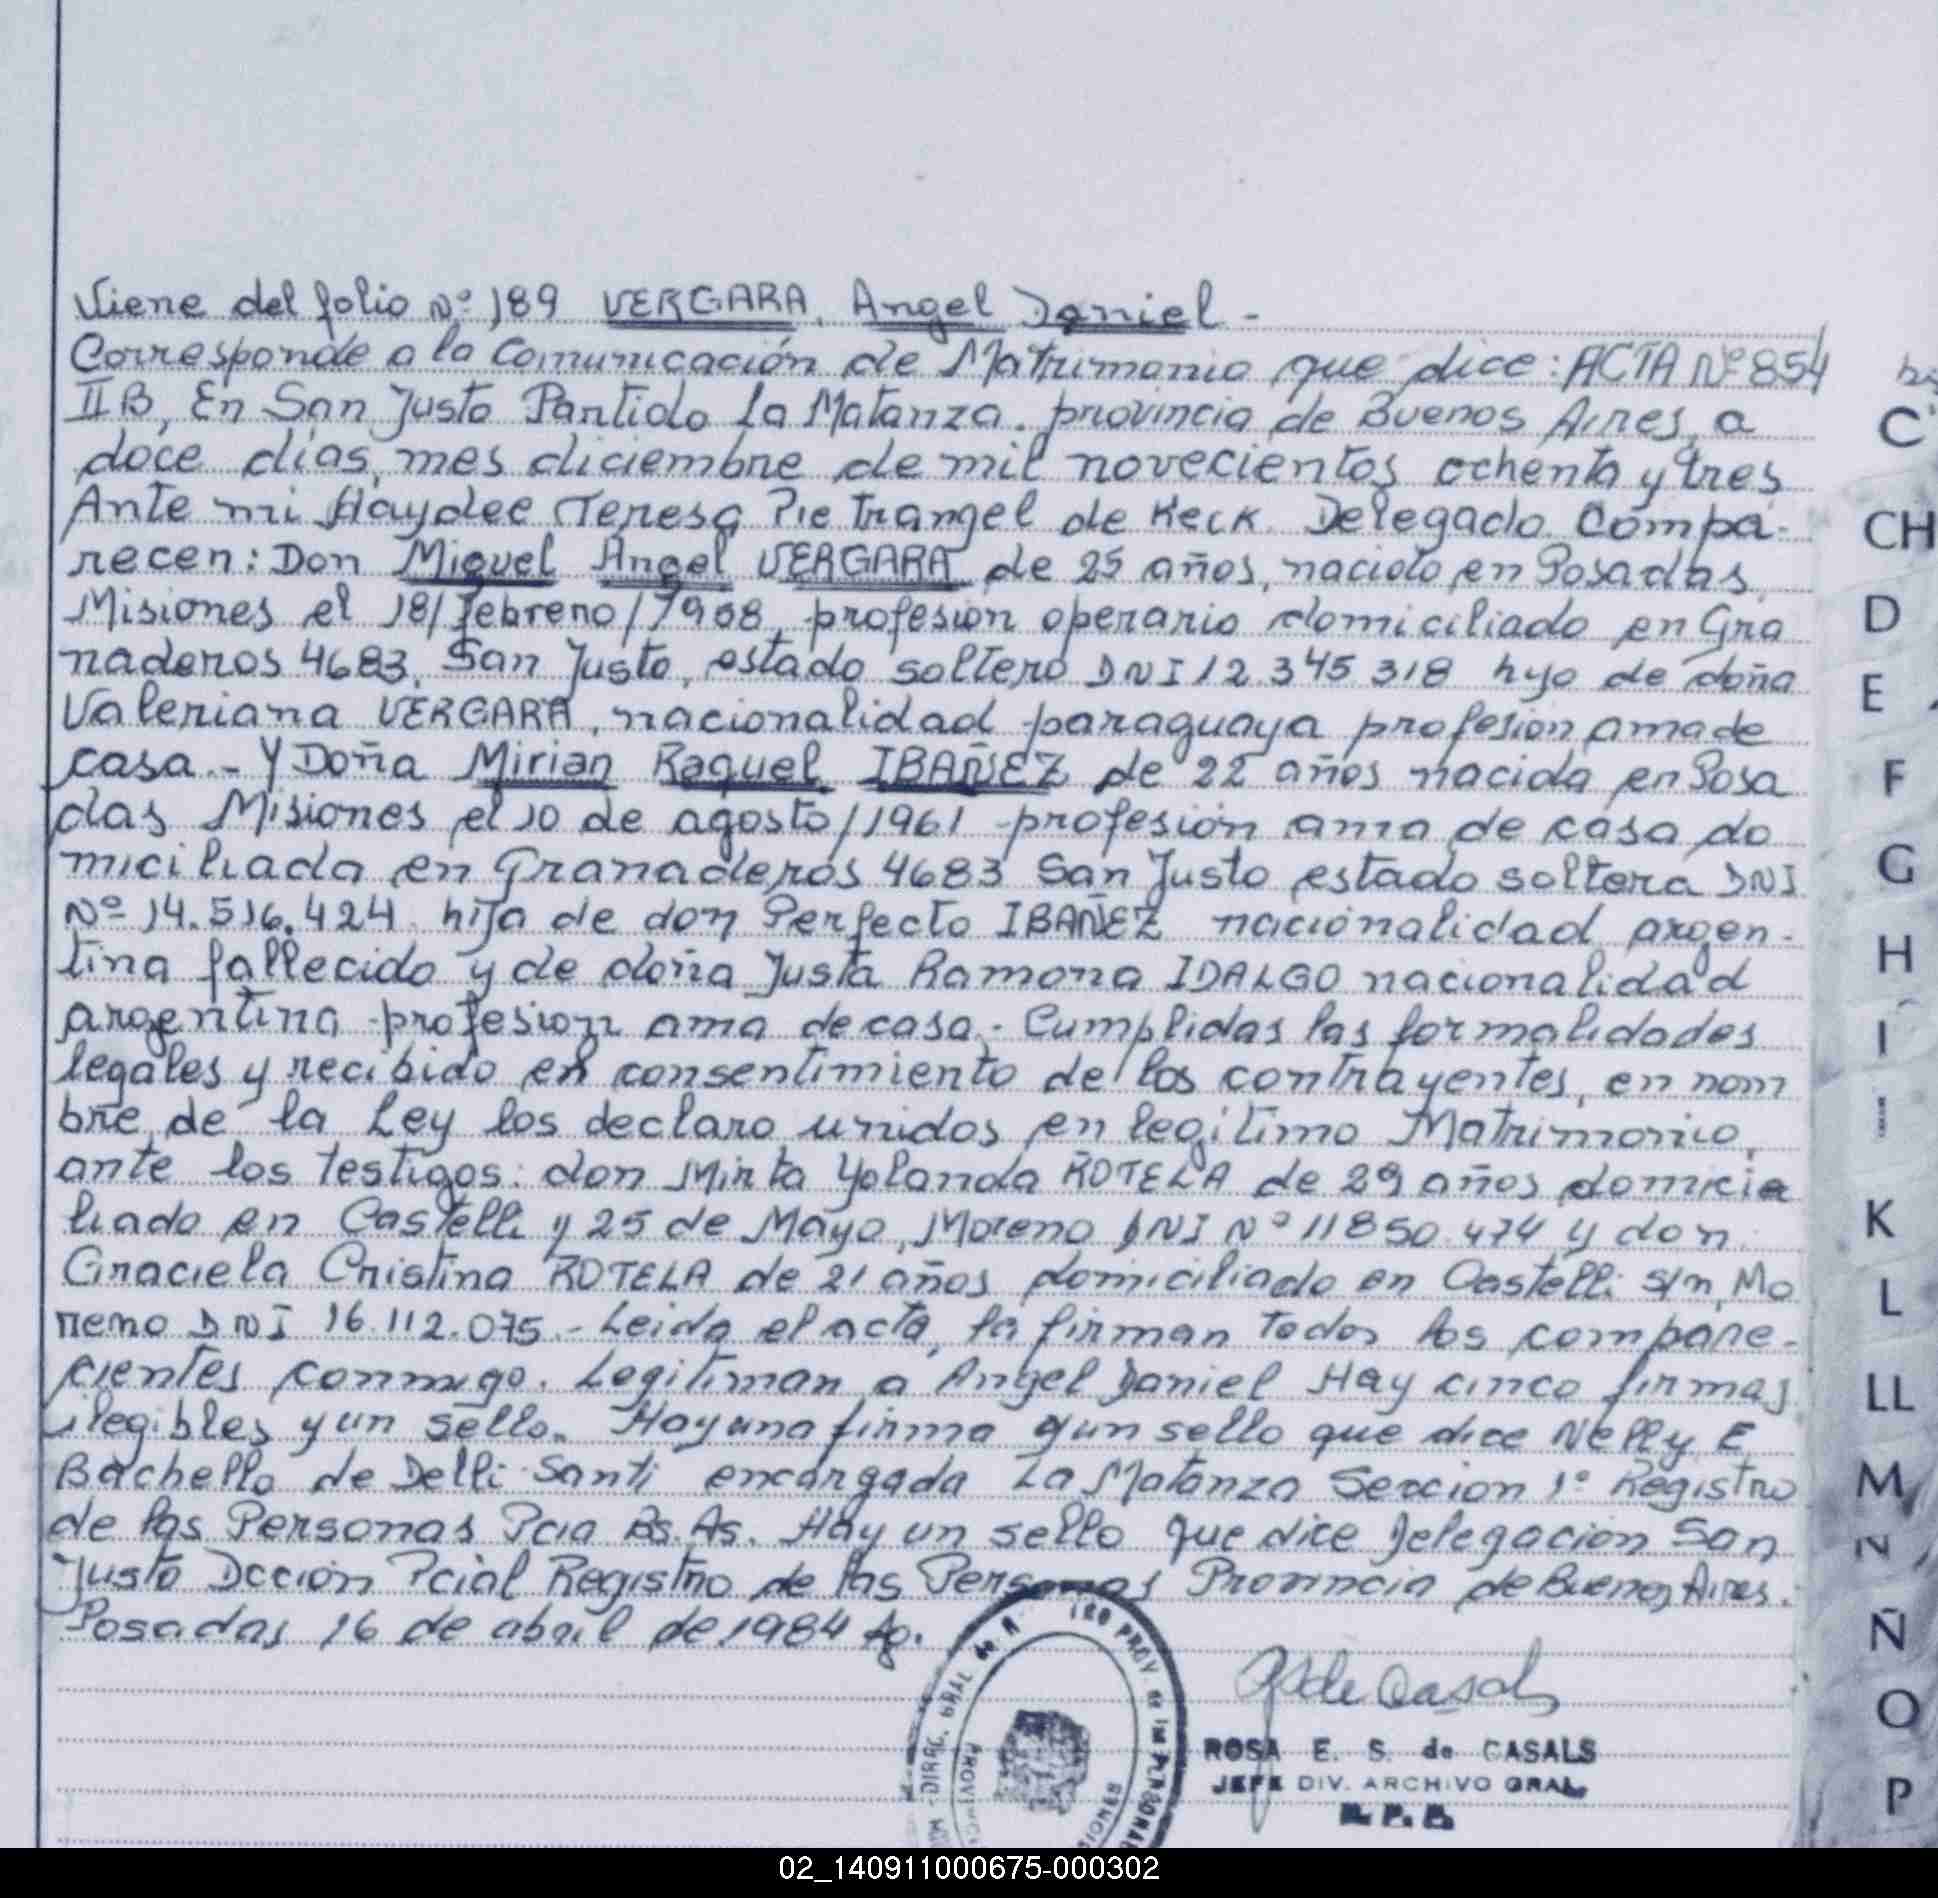 Viene del folio Nº 189 VERGARA, Angel Daniel -
Corresponde a la comunicación de Matrimonio que dice: ACTA Nº 854
II B, En San Justo Partido La Matanza. provincia de Buenos Aires, a
doce días, mes diciembre de mil novecientos ochenta y tres
Ante mi Haydee Teresa Pietrangel de Keck Delegado Compa-
recen: Don Miguel Angel VERGARA de 25 años, nacido en Posadas,
Misiones el 18/febrero/1958, profesion operario domiciliado en Gra
naderos 4683, San Justo, estado soltero DNI 12.345.318 hijo de doña
Valeriana VERGARA, nacionalidad paraguaya profesion ama de
casa.- Y Doña Mirian Raquel IBAÑEZ de 22 años nacida en Posa
das Misiones el 10 de agosto/1961 profesión ama de casa do
miciliada en Granaderos 4683 San Justo estado soltera DNI
Nº 14.516.424 hija de don Perfecto IBAÑEZ nacionalidad argen-
tina fallecido y de doña Justa Ramona IDALGO nacionalidad
argentina profesion ama de casa.- Cumplidas las formalidades
legales y recibido el consentimiento de los contrayentes, en nom
bre de la Ley los declaro unidos en legítimo Matrimonio,
ante los testigos: don Mirta Yolanda ROTELA de 29 años domici
liado en Castelli y 25 de Mayo, Moreno DNI Nº 11850.474 y don
Graciela Cristina ROTELA de 21 años domiciliado en Castelli s/n, Mo
reno DNI 16.112.075.- Leida el acta, la firman todos los compare-
cientes conmigo. Legitiman a Angel Daniel Hay cinco firmas
ilegibles y un sello. Hay una firma y un sello que dice Nelly E
Bachello de Delli Santi encargada La Matanza Seccion 1º Registro
de las Personas Pcia Bs. As. Hay un sello que dice Delegacion San
Justo Dccion Pcial Registro de las Personas Provincia de Buenos Aires.
Posadas 16 de abril de 1984
ROSA E. S. de CASALS
JEFE DIV. ARCHIVO GRAL.
R. P. P.
C
CH
D
E
F
G
H
I
K
L
LL
M
N
Ñ
O
P
02_140911000675-000302